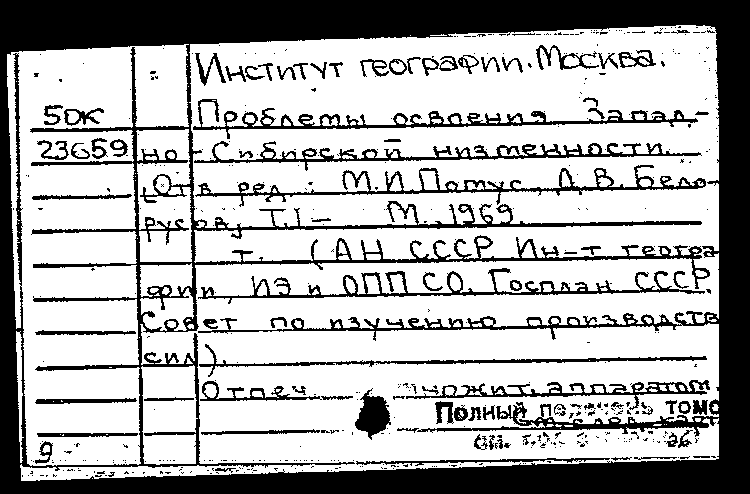 Институт географии. Москва.
5DK Проблемы освоения Запад-
23659 но-Сибирской низменности.
[Отв. ред.: М.И. Помус, Д.В. Бело-
русов]. Т.1- М., 1969.
т. (АН СССР. Ин-т геогра
фии, ИЭ и ОПП СО. Госплан СССР.
Совет по изучению производств
сил).
Отпеч. множит. аппаратом.
Полный перечень томо
см.
9